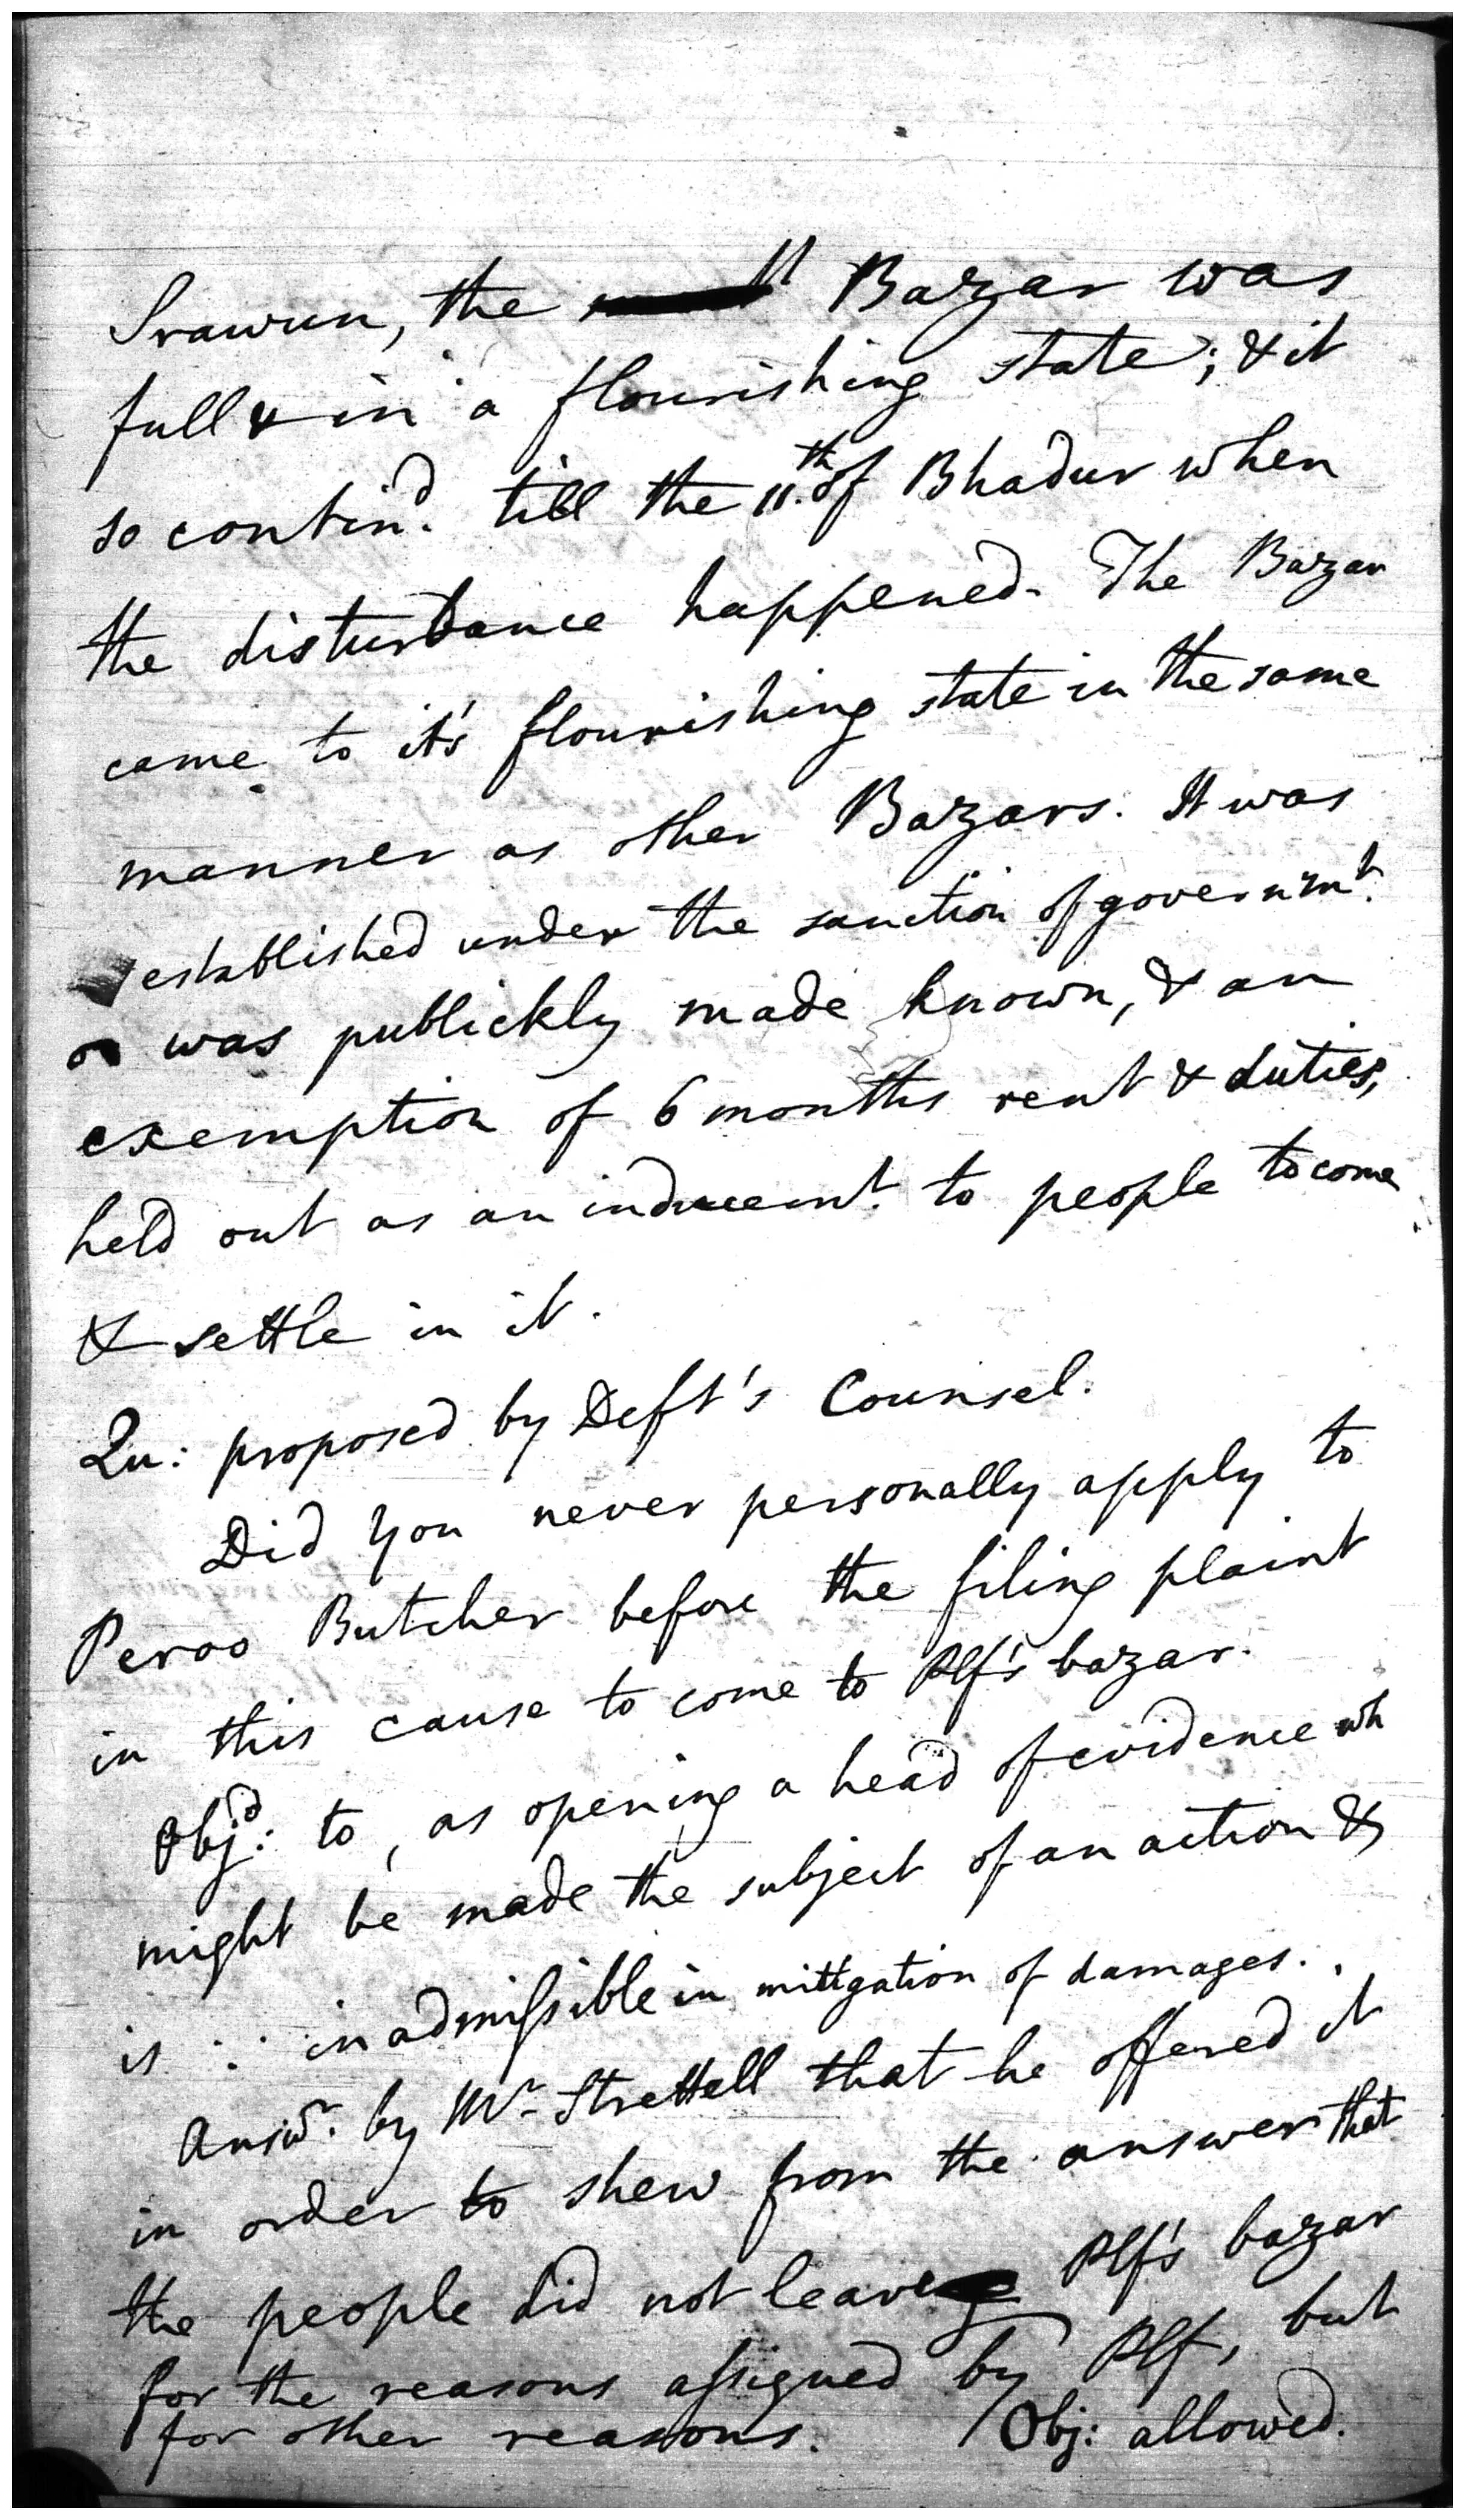 Srawun, the Bazar was
full & in a flourishing state; & it
so contin'd. till the 11.th of Bhadur when
the disturbance happened. The Bazar
came to it's flourishing state in the same
manner as other Bazars. It was
established under the sanction of governmt.
was publickly made known, & an
exemption of 6 months rent & duties,
held out as an inducemt. to people to come
& settle in it.
Qu: proposed by Deft's Counsel.
Did you never personally apply to
Peroo Butcher before the filing plaint
in this cause to come to Plf's bazar.
Obj'd: to, as opening a head of evidence wh
might be made the subject of an action &
is ∴ inadmissible in mittgation of damages.
Answr. by Mr. Strettell that he offered it
in order to shew from the answer that
the people did not leave Plf's bazar
for the reasons assigned by Plf, but
for other reasons. Obj: allowed.